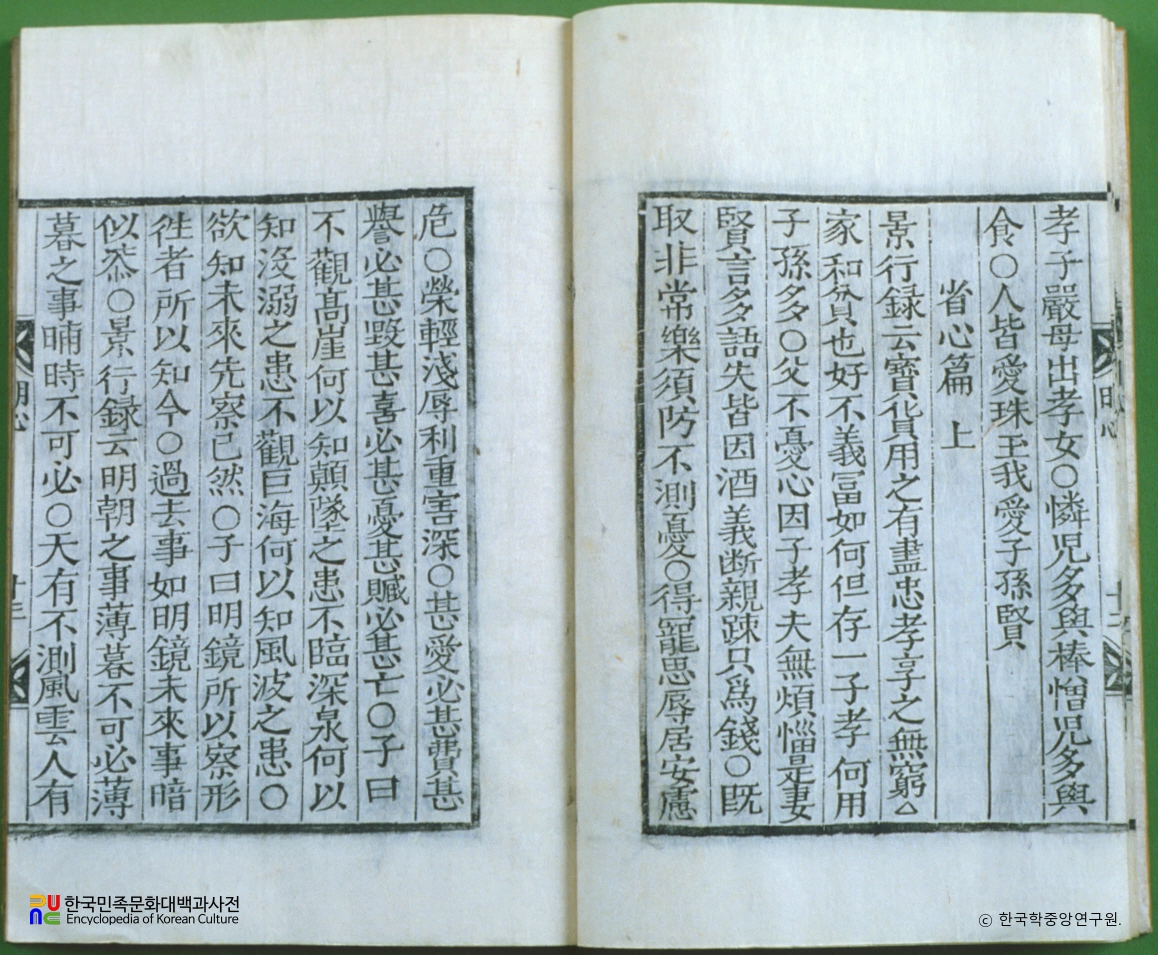 孝子嚴母出孝女○憐児多與棒憎児多與
食○人皆愛珠玉我愛子孫賢
省心篇 上
景行録云寶貨用之有盡忠孝享之無窮△
家和貧也好不義冨如何但存一子孝何用
子孫多○父不憂心因子孝夫無煩惱是妻
賢言多語失皆因酒義断親踈只為錢○既
取非常樂須防不測憂○得寵思辱居安慮
明心
十二
危○榮輕淺辱利重害深○甚愛必甚費甚
譽必甚毀甚喜必甚憂甚贓必甚亡○子曰
不觀髙崖何以知顛墜之患不臨深泉何以
知沒溺之患不觀巨海何以知風波之患○
欲知未來先察已然○子曰明鏡所以察形
徃者所以知今○過去事如明鏡未來事暗
似漆○景行録云明朝之事薄暮不可必薄
暮之事晡時不可必○天有不測風雲人有
明心
十三
한국민족문화대백과사전
Encyclopedia of Korean Culture
© 한국학중앙연구원.